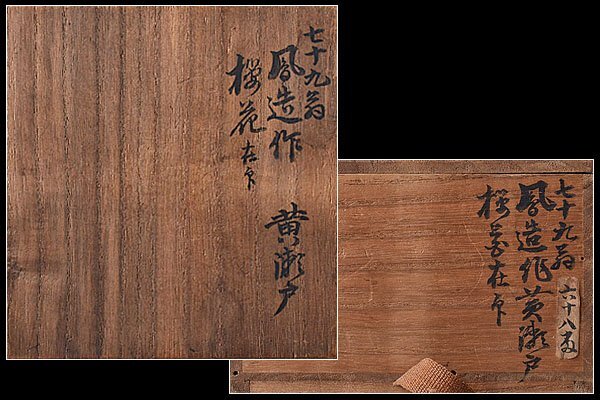 七十九翁
風造作 黄瀬戸
桜花在印
七十九翁
風造作黄瀬戸
桜花在印
六十八